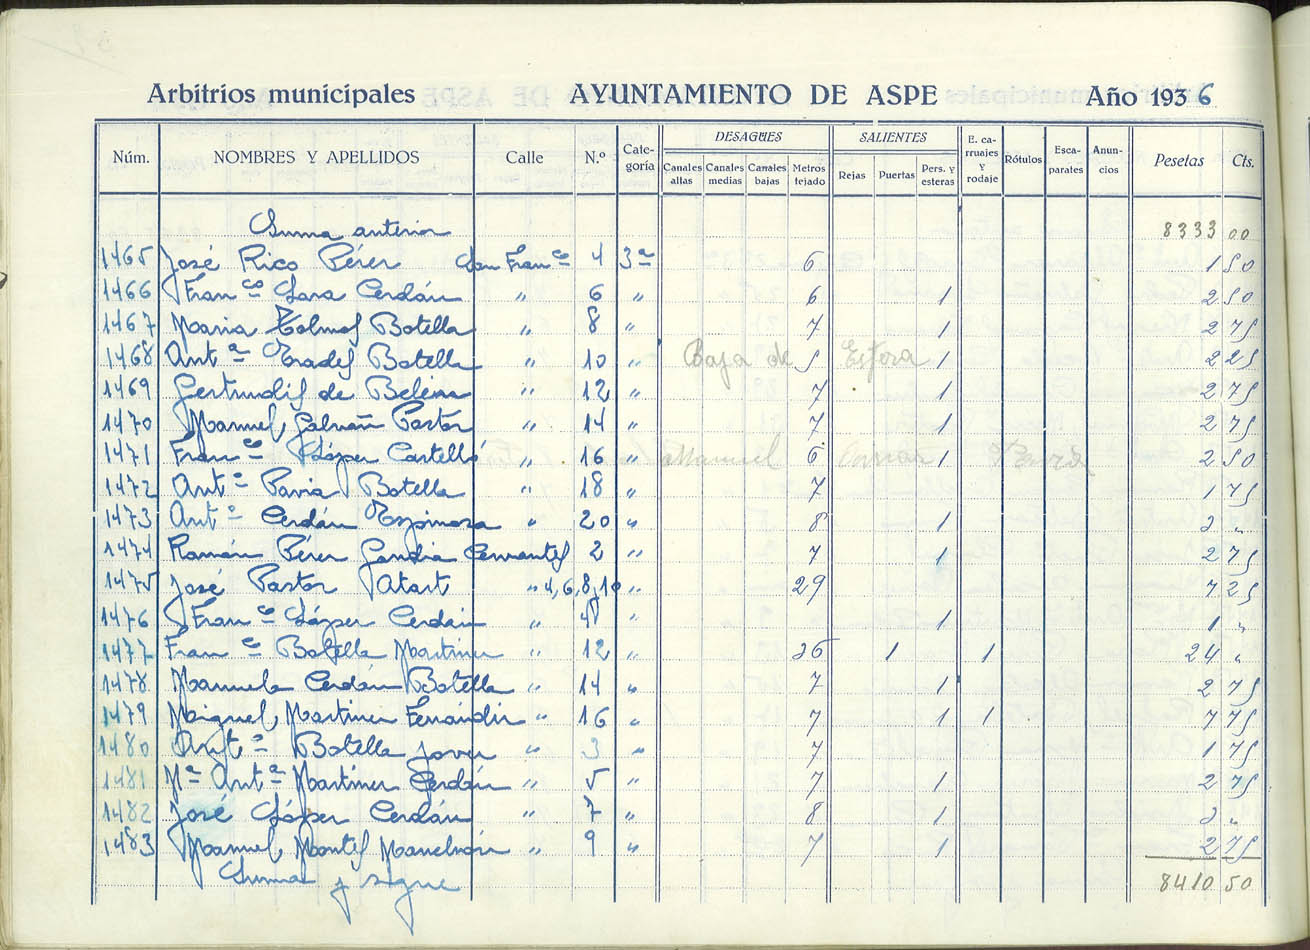 Arbitrios municipales AYUNTAMIENTO DE ASPE Año 1936
Núm. NOMBRES Y APELLIDOS Calle N.º Cate-goría DESAGÜES Canales altas Canales medias Canales bajas Metros tejado SALIENTES Rejas Puertas Pers. y esteras E. ca-rruajes y rodaje Rótulos Esca-parates Anun-cios Pesetas Cts.
Suma anterior 8333 00
1465 José Rico Pérez San Franco 4 3ª 6 1 50
1466 Franco Lara Cerdán " 6 " 6 1 2 50
1467 Maria Botella " 8 " 7 1 2 75
1468 Antª Botella " 10 " Baja de 5 1 2 25
1469 Gertrudis de Belén " 12 " 7 1 2 75
1470 Manuel Galvañ Pastor " 14 " 7 1 2 75
1471 Franco López Castelló " 16 " Manuel 6 1 2 50
1472 Antº Pavia Botella " 18 " 7 1 75
1473 Antº Cerdán Espinosa " 20 " 8 1 3 "
1474 Ramón Pérez Gandia Cervantes 2 " 7 1 2 75
1475 José Pastor " 4,6,8,10 " 29 7 25
1476 Franco López Cerdán " " 1 1 "
1477 Franco Botella Martinez " 12 " 36 1 1 24 "
1478 Manuela Cerdán Botella " 14 " 7 1 2 75
1479 Miguel Martinez Fernández " 16 " 7 1 1 7 75
1480 Antº Botella Jover " 3 " 7 1 75
1481 Mª Antª Martinez Cerdán " 5 " 7 1 2 75
1482 José López Cerdán " 7 " 8 1 3 "
1483 Manuel " 9 " 7 1 2 75
Suma y sigue 8410 50